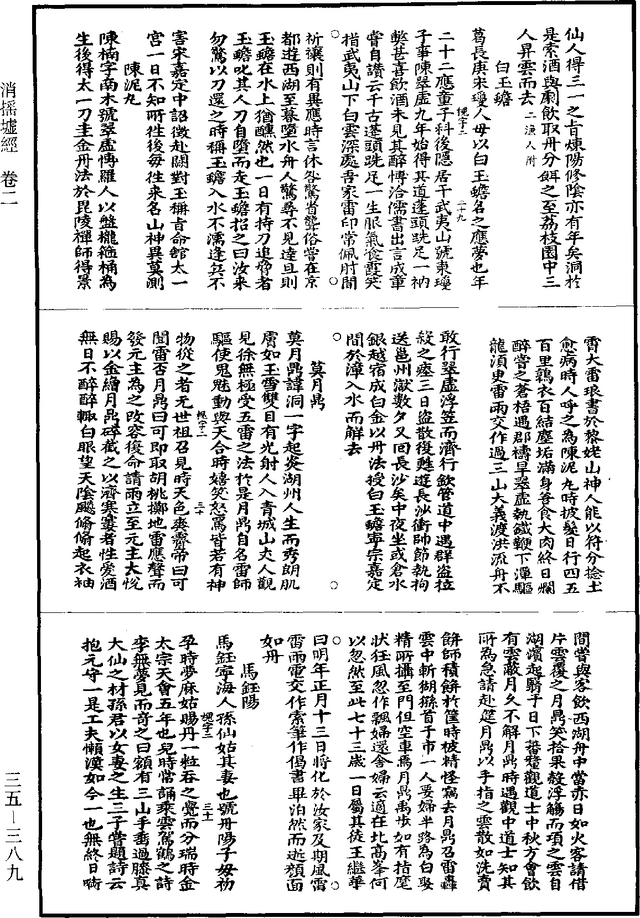 仙人得三一之旨煉陽修陰亦有年矣洞於
是索酒與劇飲取丹分餌之至荔枝園中三
人昇雲而去二漁人附
白玉蟾
葛長庚宋瓊人母以白玉蟾名之應夢也年
二十二應童子科後隱居于武夷山號東瓊
子事陳翠虛九年始得其道蓬頭跣足一衲
弊甚喜飲酒未見其醉博洽儒書出言成章
嘗自讚云千古蓬頭跣足一生服氣餐霞笑
指武夷山下白雲深處吾家雷印常佩肘間
祈禳則有異應時言休咎驚省聾俗嘗在京
都遊西湖至暮墮水舟人驚尋不見達旦則
玉蟾在水上猶醺然也一日有持刀追脅者
玉蟾叱其人刀自墮而走玉蟾招之曰汝來
勿驚以刀還之時稱玉蟾入水不濡逢兵不
害宋嘉定中詔徵赴闕對玉稱旨命館太一
宮一日不知所徃後每徃來名山神異莫測
陳泥丸
陳楠字南木號翠虛博羅人以盤櫳箍桶為
生後得太一刀圭金丹法於毘陵禪師得景
霄大雷琅書於黎姥山神人能以符水捻土
愈病時人呼之為陳泥丸時披髮日行四五
百里鶉衣百結塵垢滿身善食犬肉終日爛
醉嘗之蒼梧遇郡禱旱翠虛執鐵鞭下潭驅
龍須臾雷雨交作過三山大義渡洪流舟不
敢行翠虛浮笠而濟行飲管道中遇群盜拉
殺之瘞三日盜散復甦遊長沙衝帥節執拘
送邕州獄數夕又回長沙矣中夜坐或含水
銀越宿成白金以丹法授白玉蟾寧宗嘉定
間於漳入水而解去
莫月鼎
莫月鼎諱洞一字起炎湖州人生而秀朗肌
膚如玉雪雙目有光射人入青城山丈人觀
見徐無極受五雷之法於是月鼎自名雷師
驅使鬼魅動與天合時嬉笑怒罵皆若有神
物從之者元世祖召見時天色爽霽帝曰可
聞雷否月鼎曰可即取胡桃擲地雷應聲而
發元主為之改容復命請雨立至元主大悅
賜以金繒月鼎碎截之以濟寒窶者性愛酒
無日不醉醉輒白眼望天陰飈翛翛起衣袖
間嘗與客飲西湖舟中當赤日如火客請借
片雲覆之月鼎笑拾果殼浮觴面頃之雲自
湖濱起翳于日下蕃釐觀道士中秋方會飲
有雲蔽月久不解月鼎時遇觀中道士知其
所為急請赴筵月鼎以手指之雲散如洗賣
餅師積餅於筐時被精怪竊去月鼎召雷轟
雲中斬猢猻首于市一人娶婦半路為白馭
精所攝至門但空車焉月鼎禹步如有指麾
狀狂風忽作飄婦還舍婦云適在北高峯何
以忽然至此七十三歲一日屬其徒王繼華
曰明年正月十三日將化於汝家及期風雷
雷雨電交作索筆作偈書畢泊然而逝顏面
如丹
馬鈺陽
馬鈺寧海人孫仙姑其妻也號丹陽子母初
孕時夢麻姑賜丹一粒吞之覺而分瑞時金
太宗天會五年也兒時常誦乘雲駕鶴之詩
李無夢見而奇之曰額有三山手垂過膝真
大仙之材孫君以女妻之生三子嘗題詩云
抱元守一是工夫懶漢如今一也無終日啣
消搖墟經 卷二
三五－三八九